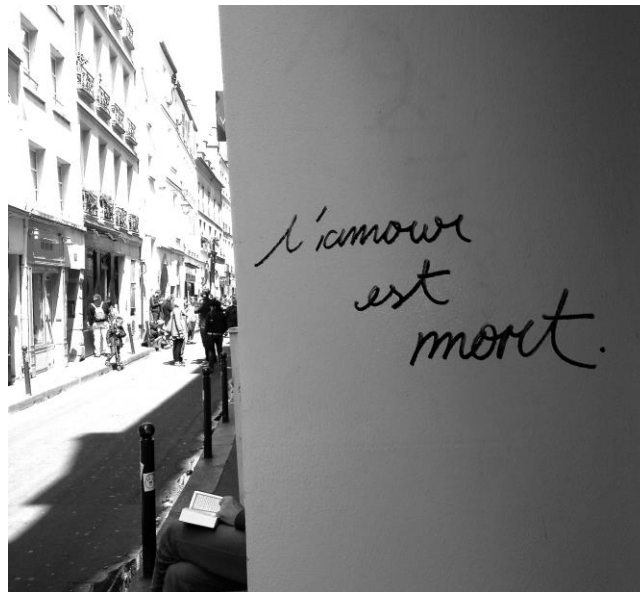 l'amour
est
mort.